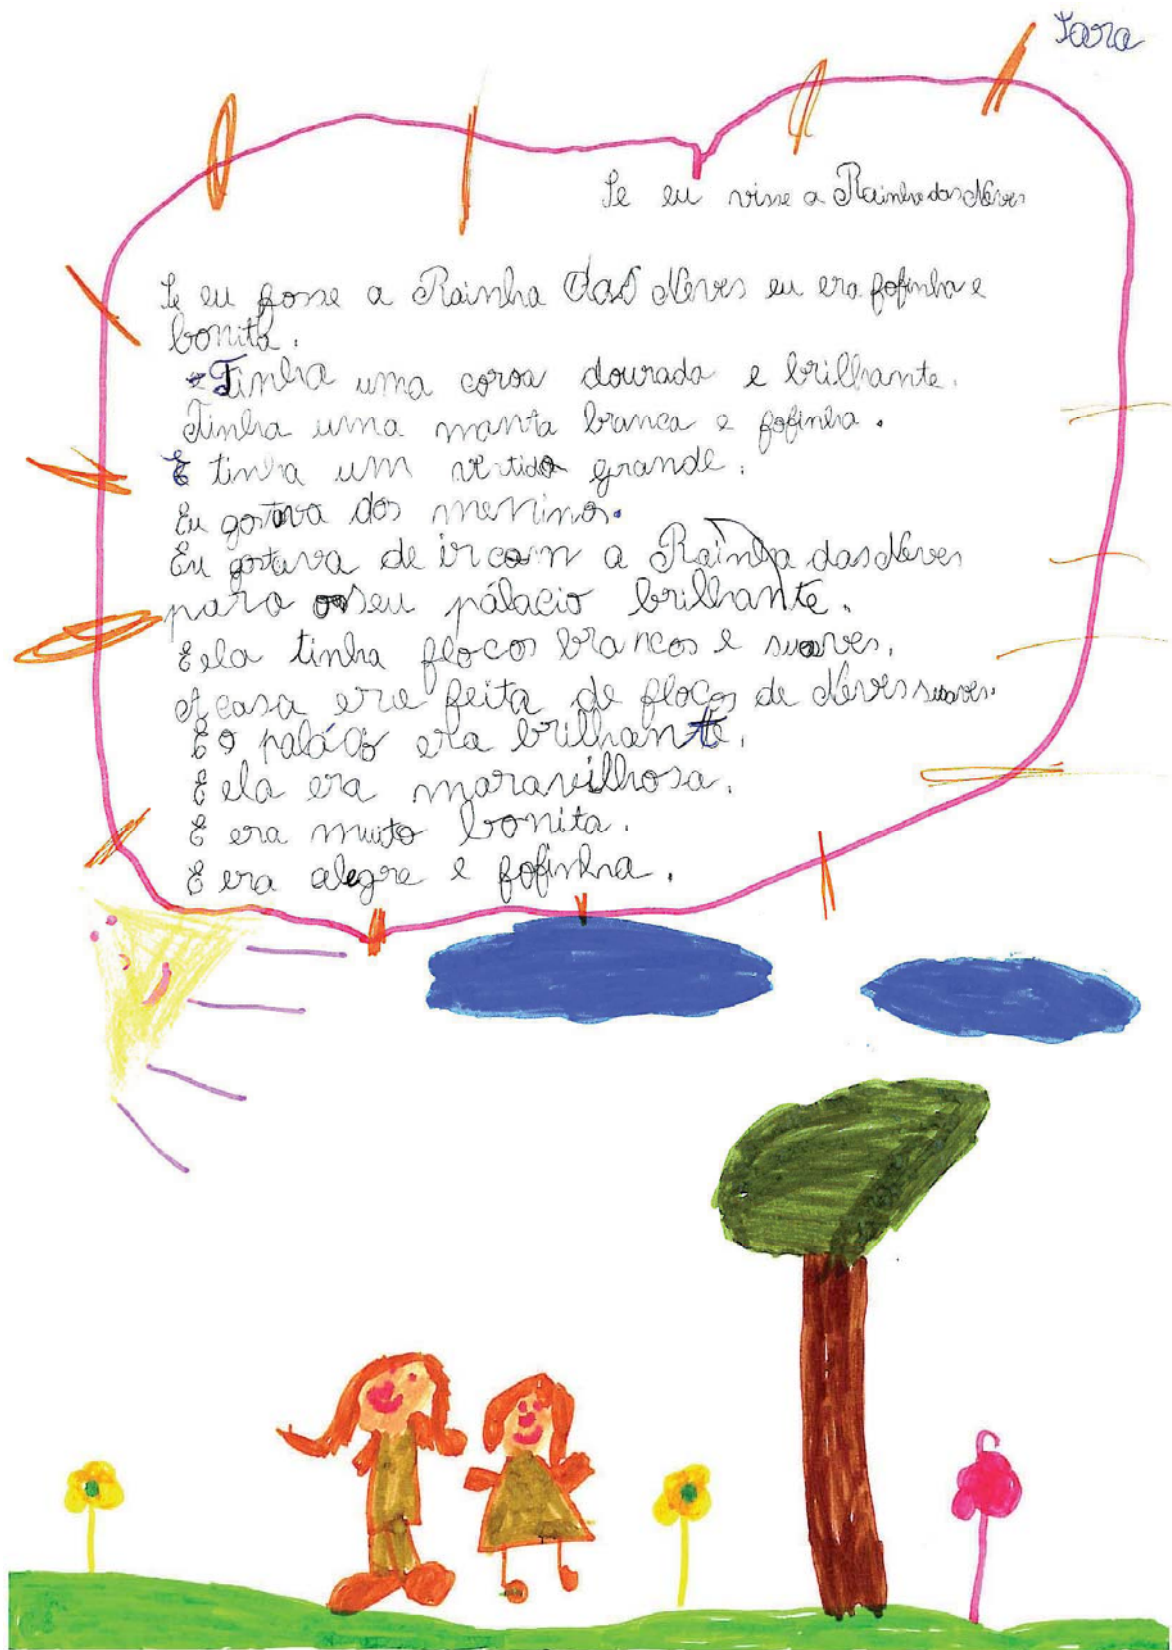 Sara
Se eu visse a Rainha das Neves
Se eu fosse a Rainha das Neves eu era fofinha e
bonita.
Tinha uma coroa dourada e brilhante.
Tinha uma manta branca e fofinha.
E tinha um vestido grande.
Eu gostava dos meninos.
Eu gostava de ir com a Rainha das Neves
para o seu pálacio brilhante.
E ela tinha flocos brancos e suaves.
A casa era feita de flocos de Neves suaves.
E o palácio era brilhante.
E ela era maravilhosa.
E era muito bonita.
E era alegre e fofinha.